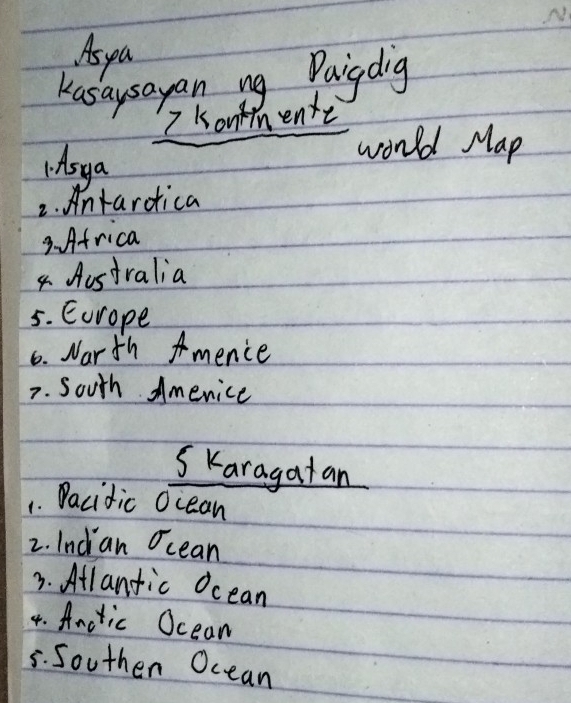 Asya
Kasaysayan ng Daigdig
7 Kontinente
World Map
1. Asya
2. Antarctica
3. Africa
4. Australia
5. Europe
6. North Amenice
7. South Amenice
5 Karagatan
1. Pacific Ocean
2. Indian Ocean
3. Atlantic Ocean
4. Arctic Ocean
5. Southen Ocean